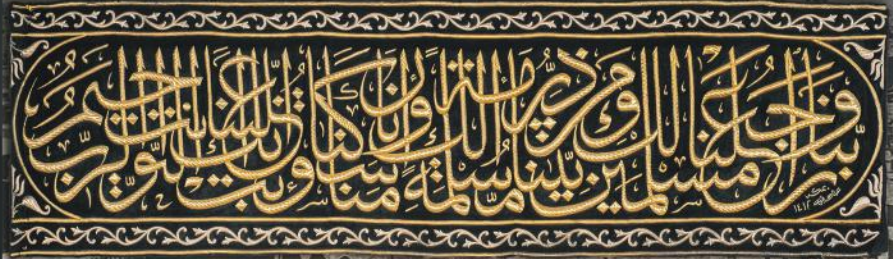 ربنا واجعلنا مسلمين لك ومن ذريتنا أمة مسلمة لك وأرنا مناسكنا وتب علينا إنك أنت التواب الرحيم
١٤١٢